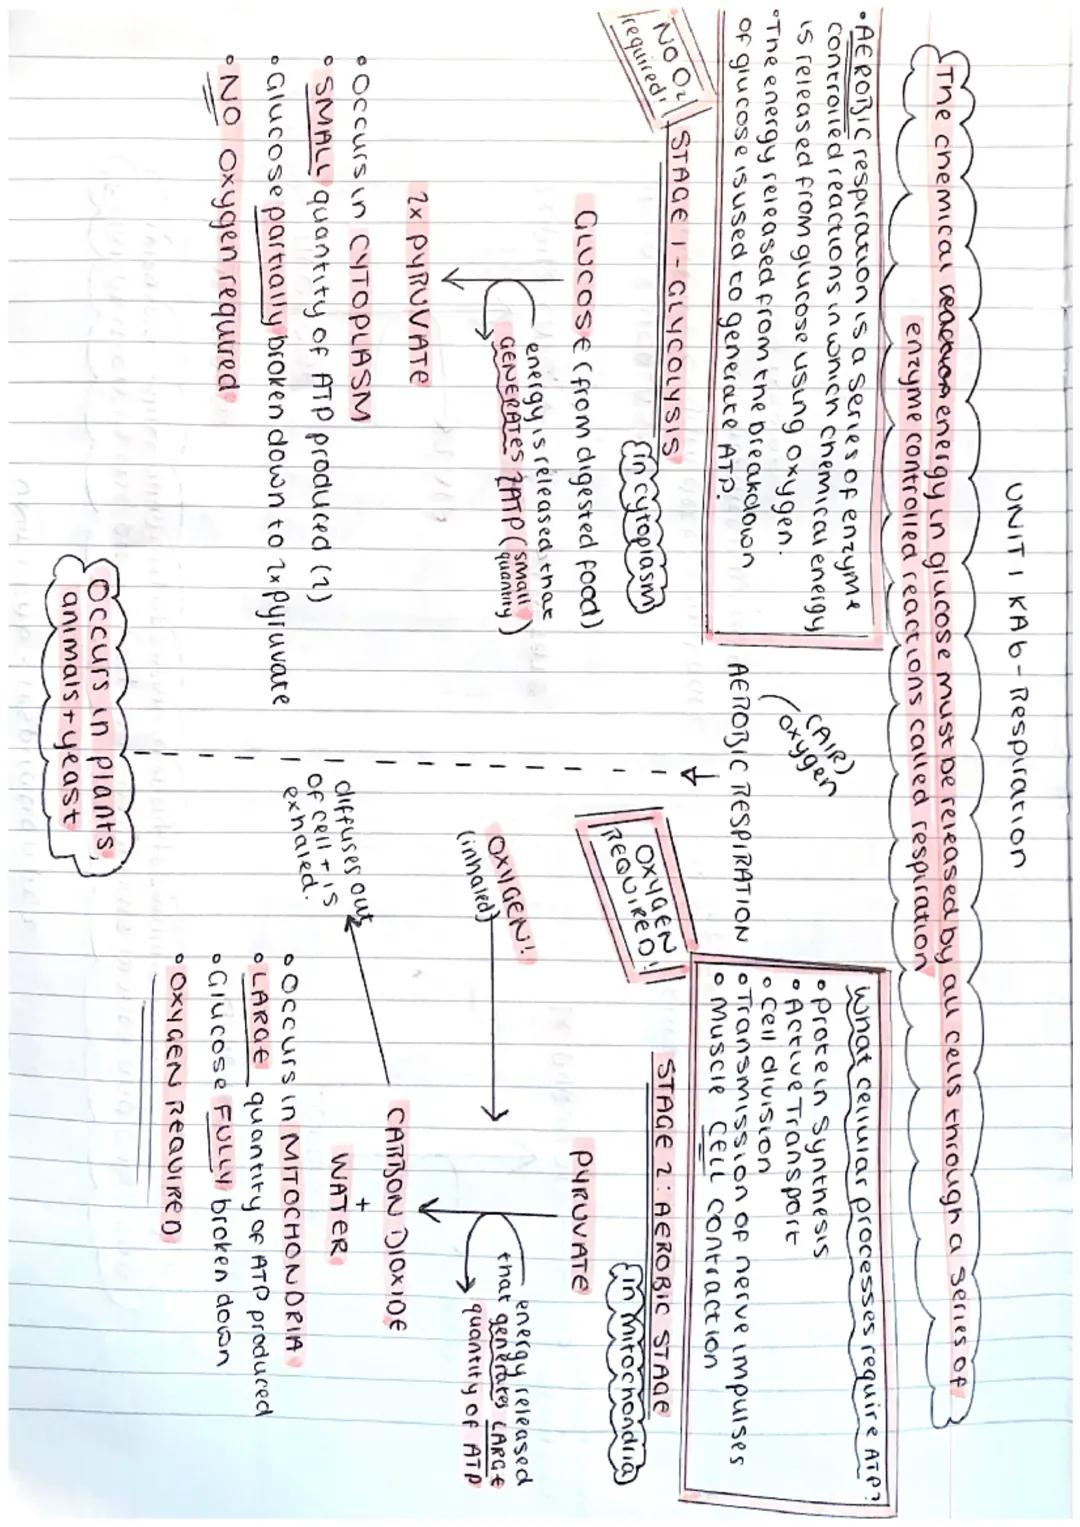 UNIT 1 KA6 - Respiration
The chemical energy in glucose must be released by all cells through a series of
enzyme controlled reactions called respiration
• AEROBIC respiration is a series of enzyme
controlled reactions in which chemical energy
is released from glucose using oxygen.
• The energy released from the breakdown
of glucose is used to generate ATP.
What cellular processes require ATP?
• Protein Synthesis
• Active Transport
• Cell division
• Transmission of nerve impulses
• Muscle CELL contraction
(AIR)
oxygen
AEROBIC RESPIRATION
NO O2
required!
STAGE 1 - GLYCOLYSIS
(in cytoplasm)
GLUCOSE (from digested food)
energy is released that
GENERATES 2ATP (small
quantity)
2x PYRUVATE
• Occurs in CYTOPLASM
• SMALL quantity of ATP produced (2)
• Glucose partially broken down to 2x pyruvate
• NO oxygen required
OXYGEN
REQUIRED!
STAGE 2: AEROBIC STAGE
(in mitochondria)
PYRUVATE
OXYGEN!
(inhaled)
energy released
that generates LARGE
quantity of ATP
CARBON DIOXIDE
+
WATER
diffuses out
of cell + is
exhaled.
• Occurs in MITOCHONDRIA
• LARGE quantity of ATP produced
• Glucose FULLY broken down
• OXYGEN REQUIRED
Occurs in plants,
animals + yeast